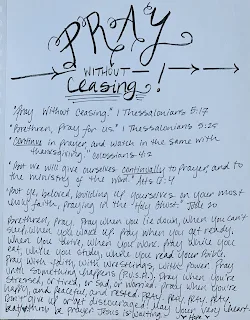 PRAY
WITHOUT
Ceasing!
"Pray Without Ceasing." 1 Thessalonians 5:17
"Brethren, pray for us." 1 Thessalonians 5:25
"Continue in prayer, and watch in the same with
thanksgiving." Colossians 4:2
"But we will give ourselves continually to prayer, and to
the ministry of the word." Acts 6:4
"But ye, beloved, building up yourselves on your most
holy faith, praying in the Holy Ghost." Jude 20
Brethren, pray. Pray when you lie down, when you can't
sleep, when you wake up. Pray when you get ready,
when you drive, when you work. Pray while you
eat, while you study, while you read your Bible.
Pray with faith, with wrestlings, with power. Pray
until something happens (P.U.S.H.). Pray when you're
stressed, or tired, or sad, or worried. Pray when you're
happy, and and rested. Pray, pray, pray, pray.
Don't give up or get discouraged. May your very
be prayer. Jesus is waiting